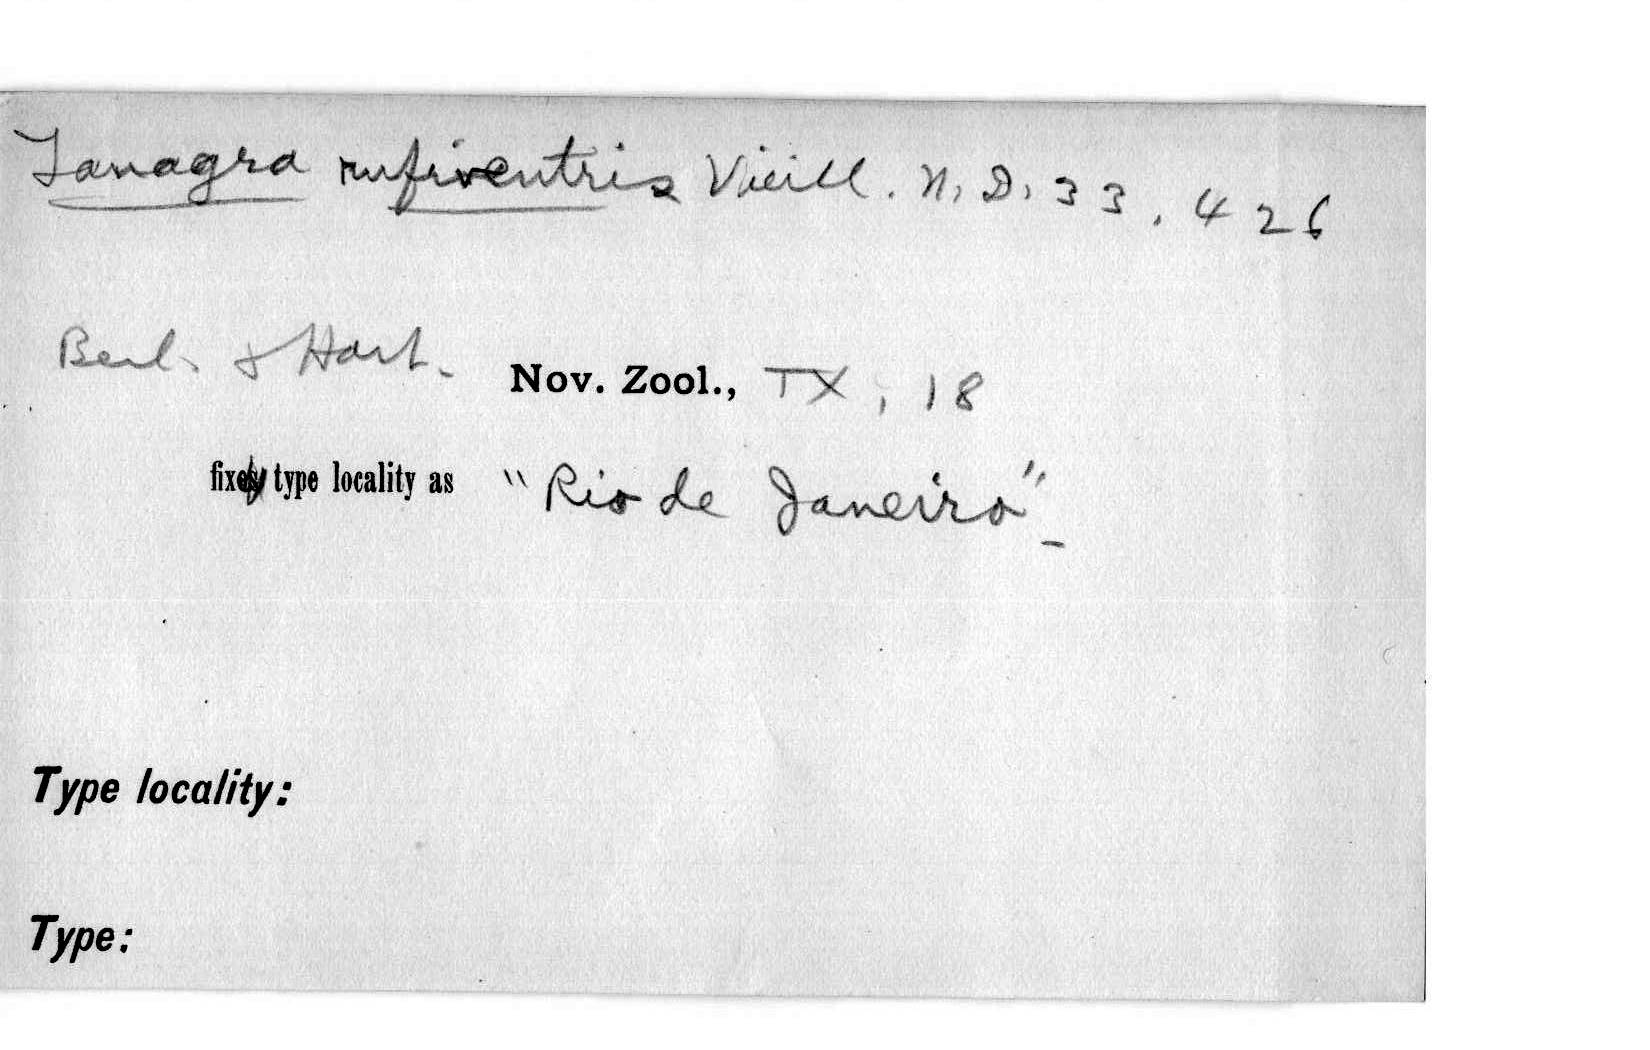 Tanagra rufiventris Vieill. N. D. 33, 426
Berl. & Hart. Nov. Zool., IX, 18
fix type locality as "Rio de Janeiro"_
Type locality:
Type: